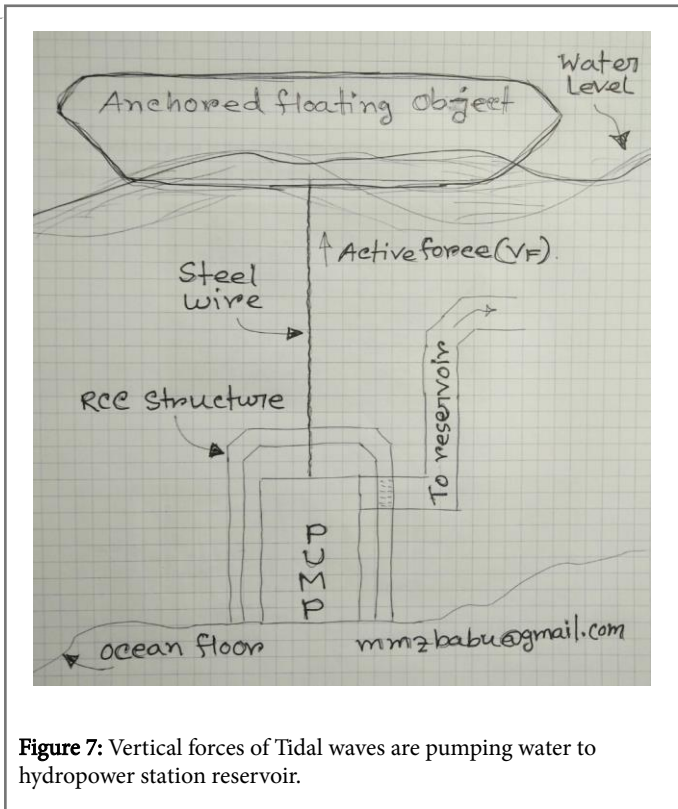 Water
Level
Anchored floating object
Active force (VF).
Steel
wire
RCC Structure
To reservoir
PUMP
ocean floor
mmzbabu@gmail.com
Figure 7: Vertical forces of Tidal waves are pumping water to
hydropower station reservoir.